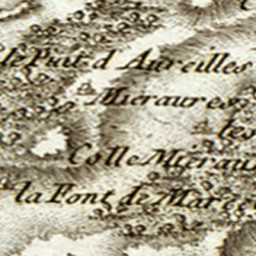 le Puit d'Aureilles
Mieraures
les
Colle Mieraur
la Font de Marce